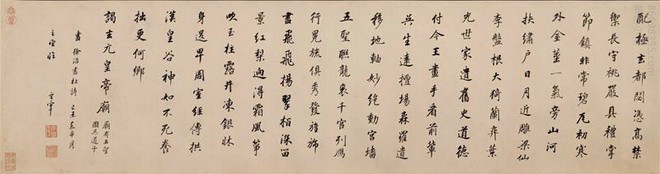 配極玄都閟憑高禁
籞長守祧嚴具禮掌
節鎮非常碧瓦初寒
外金莖一氣旁山河
扶繡戶日月近雕梁仙
李盤根大猗蘭奕葉
光世家遺舊史道德
付今王畫手看前輩
吳生遠擅場森羅
移地軸妙絕動宮牆
五聖聯龍袞千官列雁
行冕旒俱秀發旌旆
盡飛揚翠柏深留
景紅梨迥得霜風箏
吹玉柱露井凍銀床
身退卑周室經傳拱
漢皇谷神如不死養
拙更何鄉
謁玄元皇帝廟
廟有五聖
圖吳道子
書徐浩書杜詩
玄宰